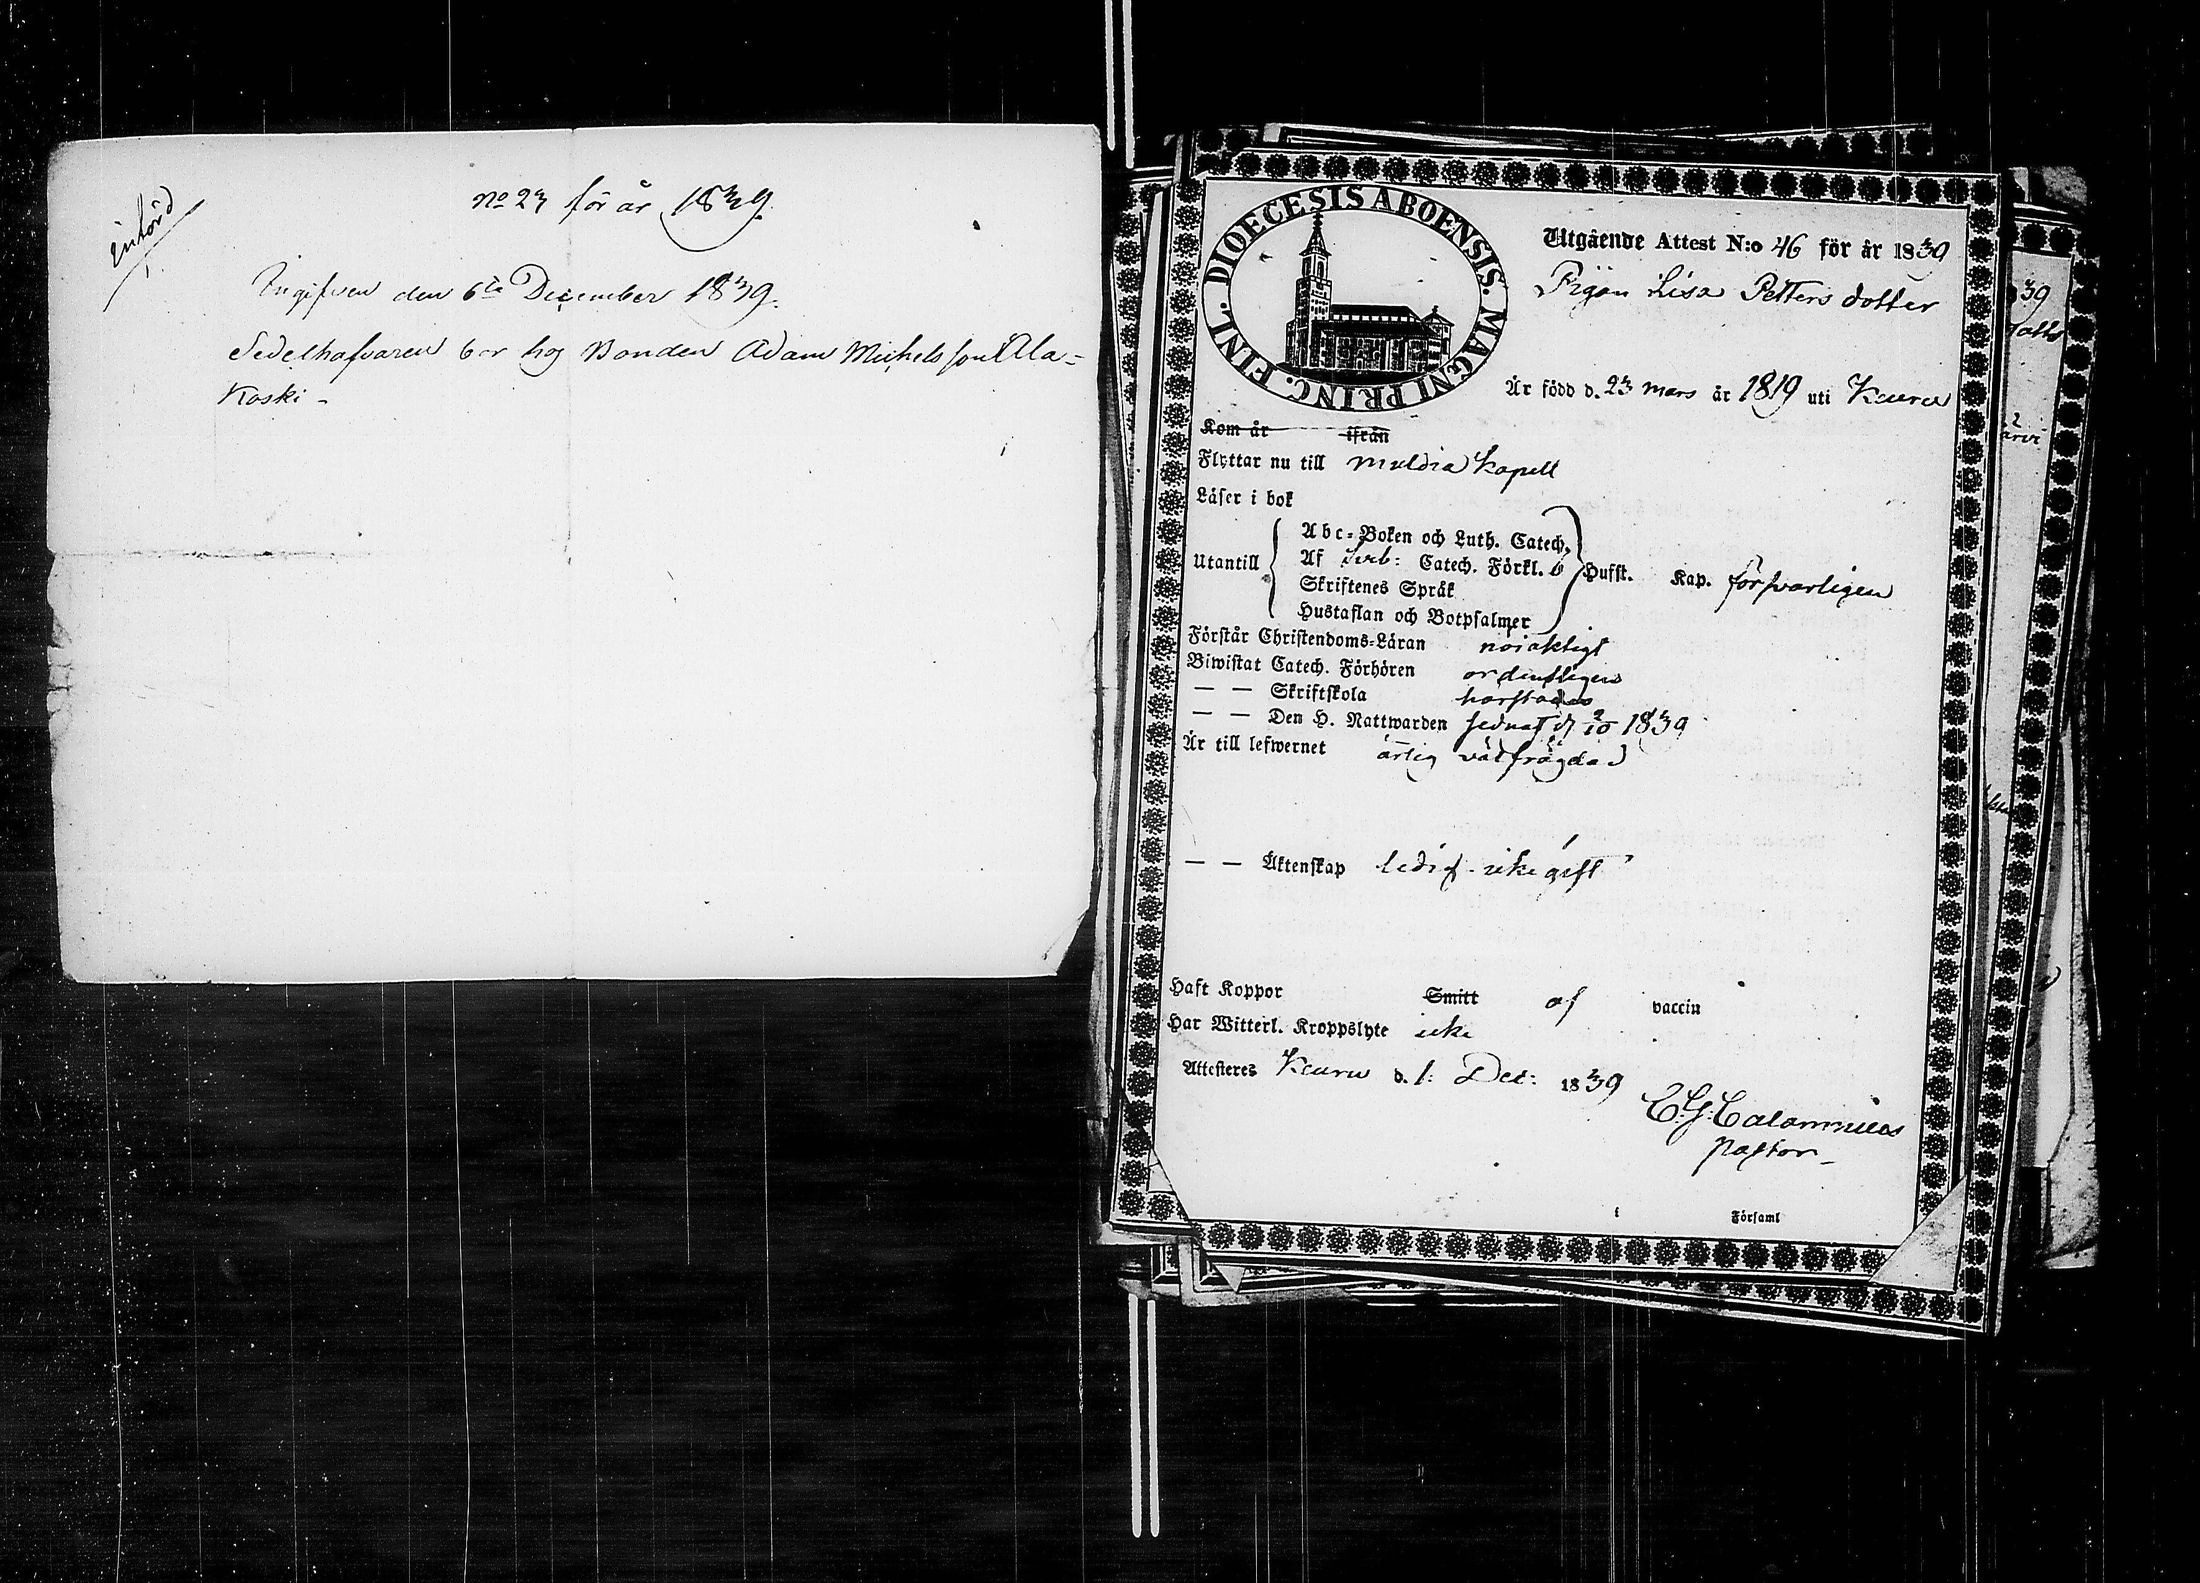 införd
No 23 för år 1839.
Ingifven den 6te December 1839.
Sedelhafvaren bor hos Bonden Adam Michelsson Ala-
Koski -
DIOECESIS ABOENSIS. MAGNI PRINC. FINL.
Utgående Attest N:o 46 för år 1839
Pigan Lisa Petters dotter
Är född d. 23 mars år 1819 uti Keuru
Kom år ifrån
Flyttar nu till Muldia Kapell
Läser i bok
Abc-Boken och Luth. Catech.
Utantill Af Sveb: Catech. Förkl. 6 Hufst. Kap. försvarligen
Skriftenes Språk
Hustaflan och Botpsalmer
Förstår Christendoms-Läran nöjaktigt
Biwistat Catech. Förhören ordentligen
— — Skriftskola
— — Den H. Nattwarden sednast d 9/10 1839
Är till lefwernet ärlig välfrägdad
— — Äktenskap ledig icke gift
Haft Koppor Smitt af vaccin
Har Witterl. Kroppslyte icke
Attesteres Keuru d. 1: Dec: 1839
C. G. Calamnius
Pastor
i Församl
39